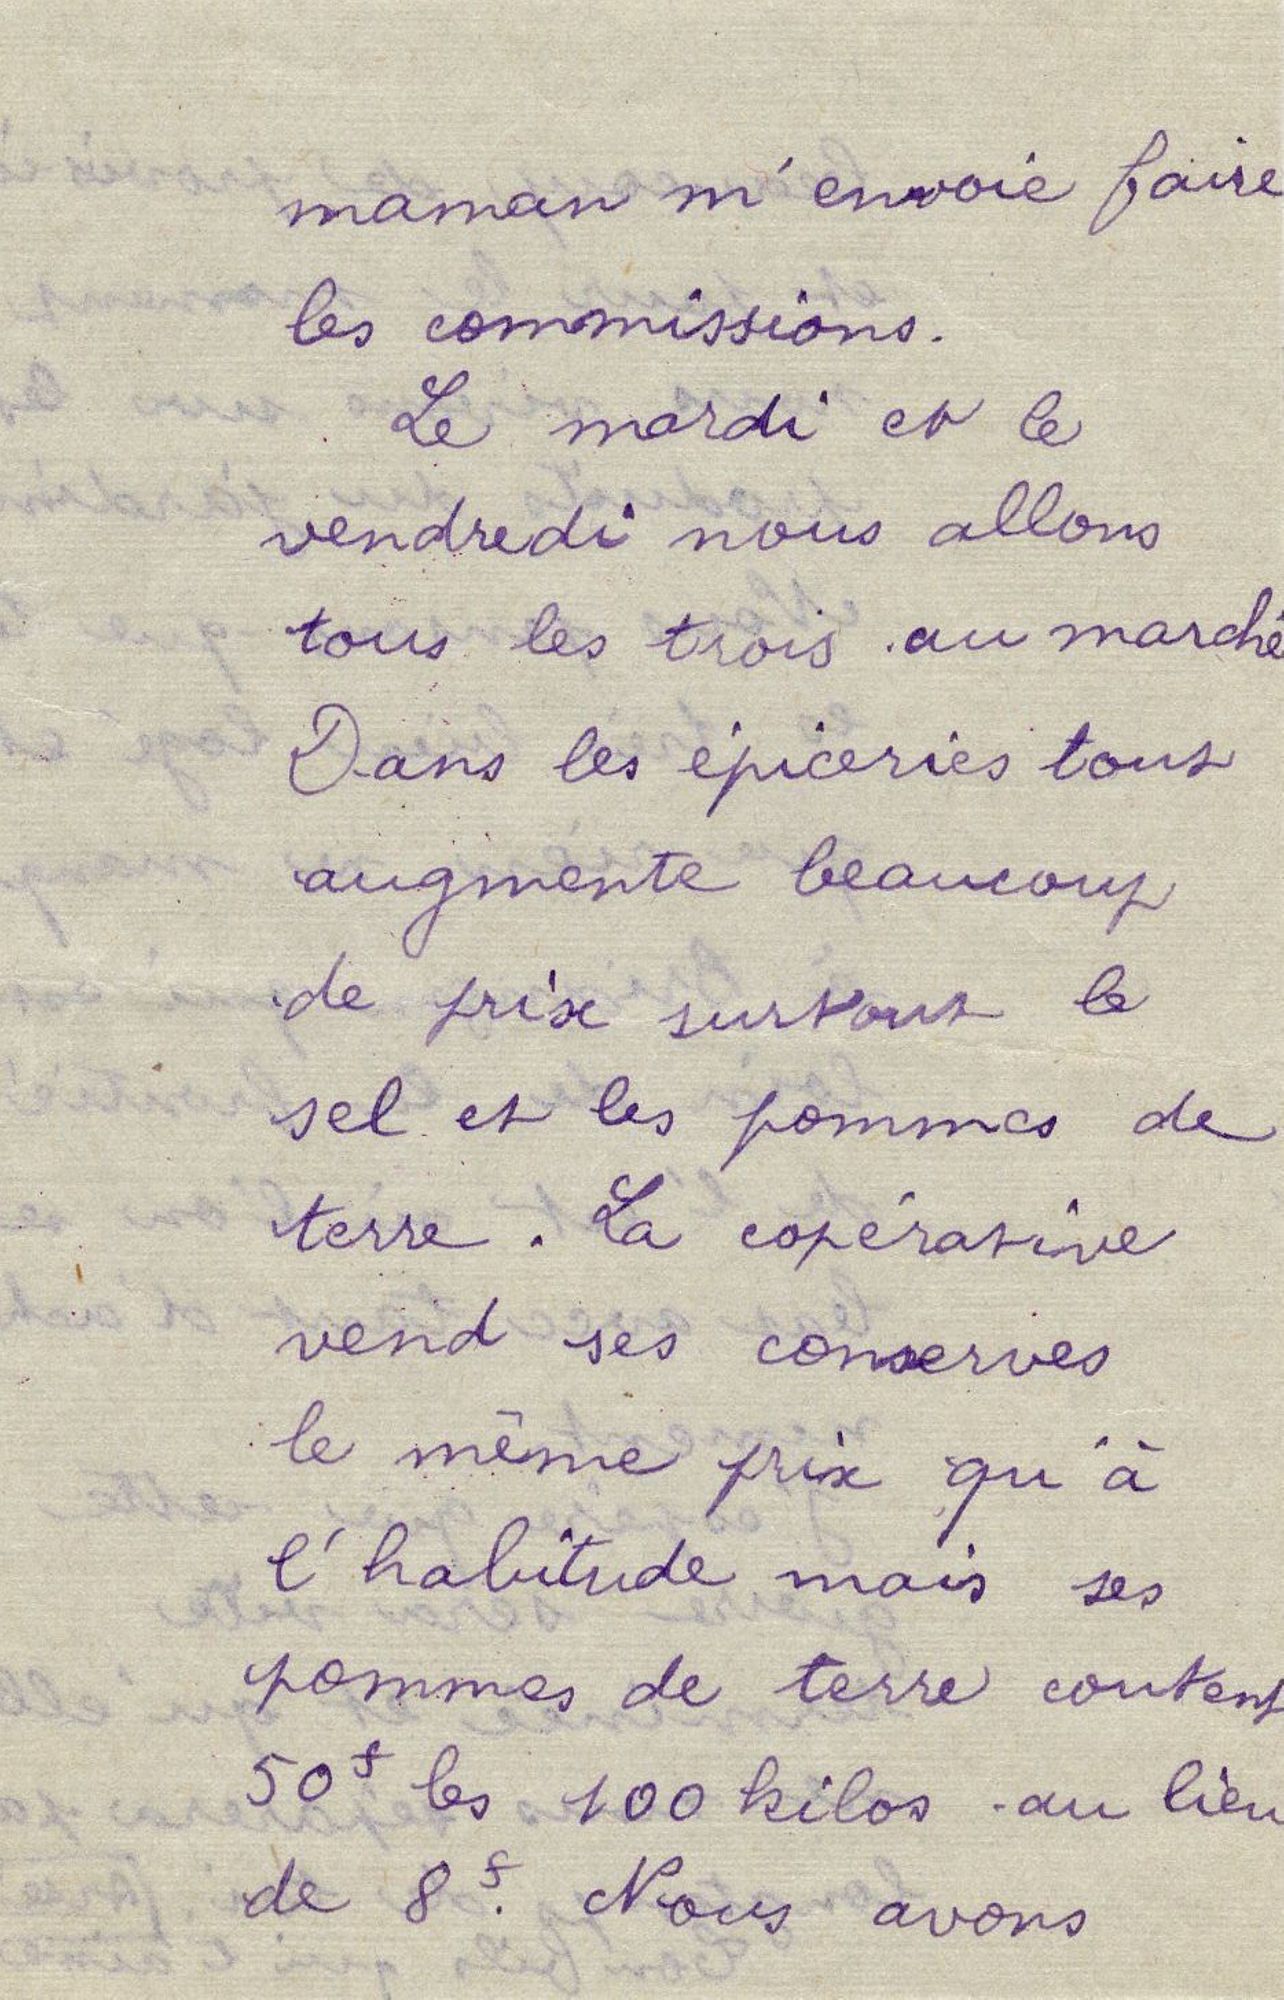 maman m'envoie faire
les commissions.
Le mardi et le
vendredi nous allons
tous les trois au marché
Dans les épiceries tout
augmente beaucoup
de prix surtout le
sel et les pommes de
terre. La copérative
vend ses conserves
le même prix qu'à
l'habitude mais ses
pommes de terre coutent
50f les 100 kilos au lieu
de 8f. Nous avons